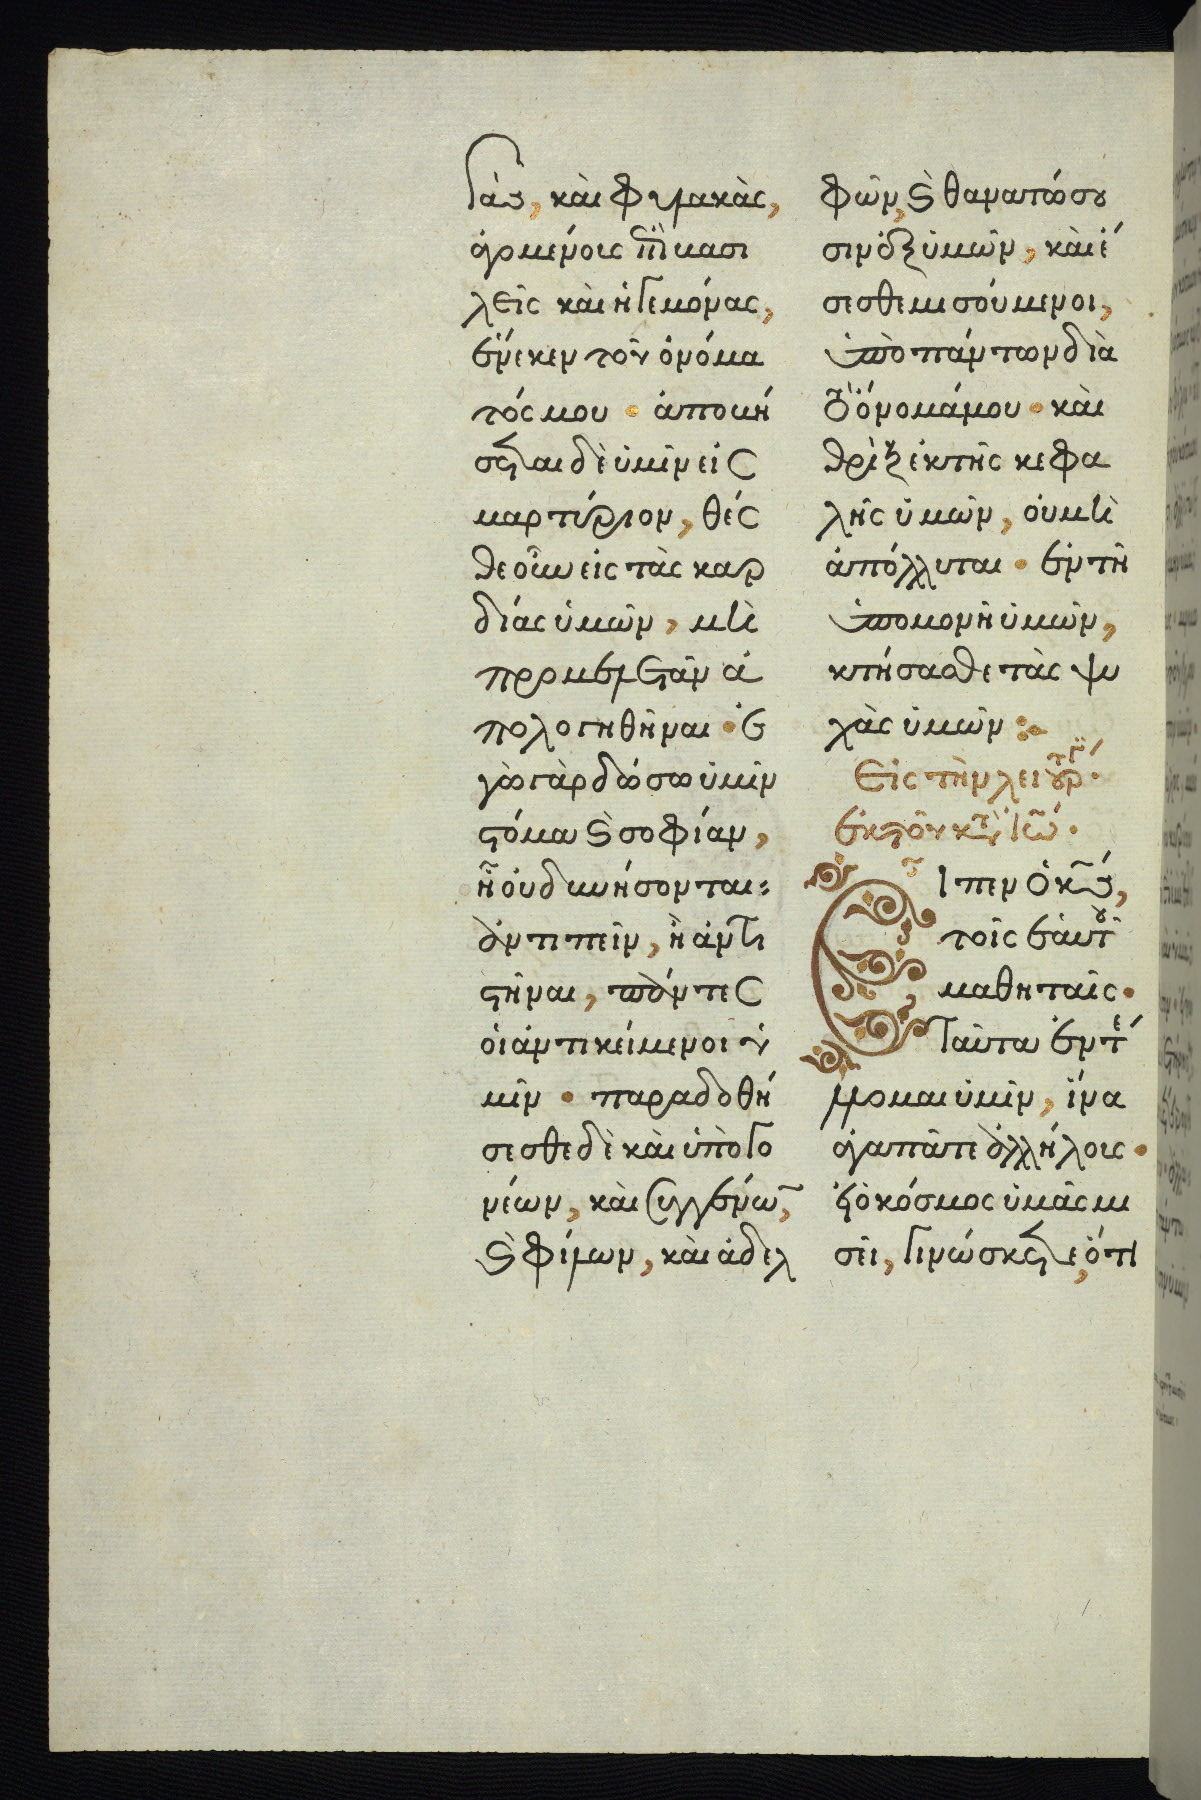 γὰς, καὶ φυλακὰς,
ἀγομένους ἐπὶ βασι
λεῖς καὶ ἡγεμόνας,
ἕνεκεν τοῦ ὀνόμα
τός μου · ἀποβή
σεται δὲ ὑμῖν εἰς
μαρτύριον, θές
θε οὖν εἰς τὰς καρ
δίας ὑμῶν, μὴ
προμελετᾶν ἀ
πολογηθῆναι · ἐ
γὼ γὰρ δώσω ὑμῖν
στόμα καὶ σοφίαν,
ᾗ οὐ δυνήσονται
ἀντειπεῖν, ἢ ἀντι
στῆναι, πάντες
οἱ ἀντικείμενοι ὑ
μῖν · παραδοθή
σεσθε δὲ καὶ ὑπὸ γο
νέων, καὶ συγγενῶν,
καὶ φίλων, καὶ ἀδελ
φῶν, καὶ θανατώσου
σιν ἐξ ὑμῶν, καὶ ἔ
σεσθε μισούμενοι,
ὑπὸ πάντων διὰ
τὸ ὄνομά μου · καὶ
θρὶξ ἐκ τῆς κεφα
λῆς ὑμῶν, οὐ μὴ
ἀπόληται · ἐν τῇ
ὑπομονῇ ὑμῶν,
κτήσασθε τὰς ψυ
χὰς ὑμῶν :
Εἰς τὴν λειτουργ
ἐκ τοῦ κτ Ἰω ·
Εἶπεν ὁ κς,
τοῖς ἑαυτοῦ
μαθηταῖς ·
Ταῦτα ἐντέ
λλομαι ὑμῖν, ἵνα
ἀγαπᾶτε ἀλλήλους ·
εἰ ὁ κόσμος ὑμᾶς μι
σεῖ, γινώσκετε, ὅτι